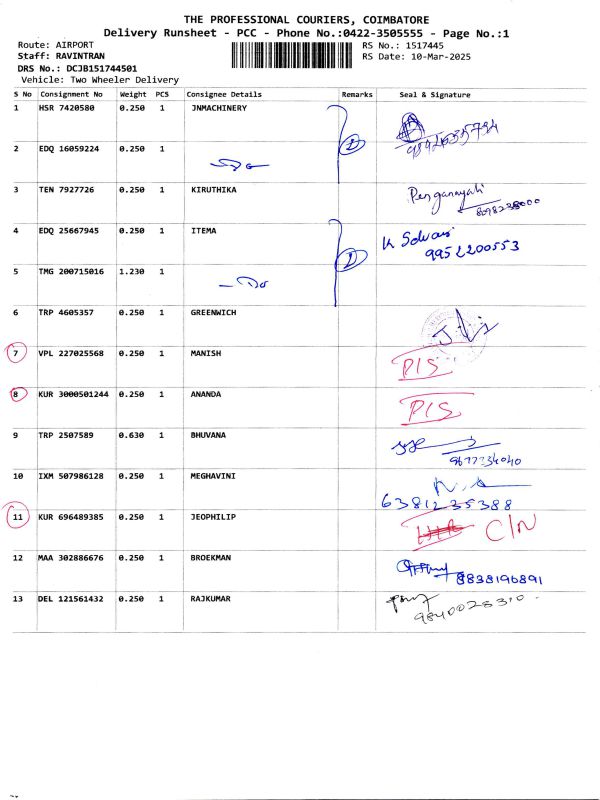 THE PROFESSIONAL COURIERS, COIMBATORE
Delivery Runsheet - PCC - Phone No.:0422-3505555 - Page No.:1
Route: AIRPORT
RS No.: 1517445
Staff: RAVINTRAN
RS Date: 10-Mar-2025
DRS No.: DCJB151744501
Vehicle: Two Wheeler Delivery
S No Consignment No Weight PCS Consignee Details Remarks Seal & Signature
1 HSR 7420580 0.250 1 JNMACHINERY
2 EDQ 16059224 0.250 1
3 TEN 7927726 0.250 1 KIRUTHIKA
4 EDQ 25667945 0.250 1 ITEMA K Selvan
9952200553
5 TMG 200715016 1.230 1
6 TRP 4605357 0.250 1 GREENWICH
7 VPL 227025568 0.250 1 MANISH P/S
8 KUR 3000501244 0.250 1 ANANDA P/S
9 TRP 2507589 0.630 1 BHUVANA
10 IXM 507986128 0.250 1 MEGHAVINI
6381235388
11 KUR 696489385 0.250 1 JEOPHILIP C/N
12 MAA 302886676 0.250 1 BROEKMAN 8838190891
13 DEL 121561432 0.250 1 RAJKUMAR